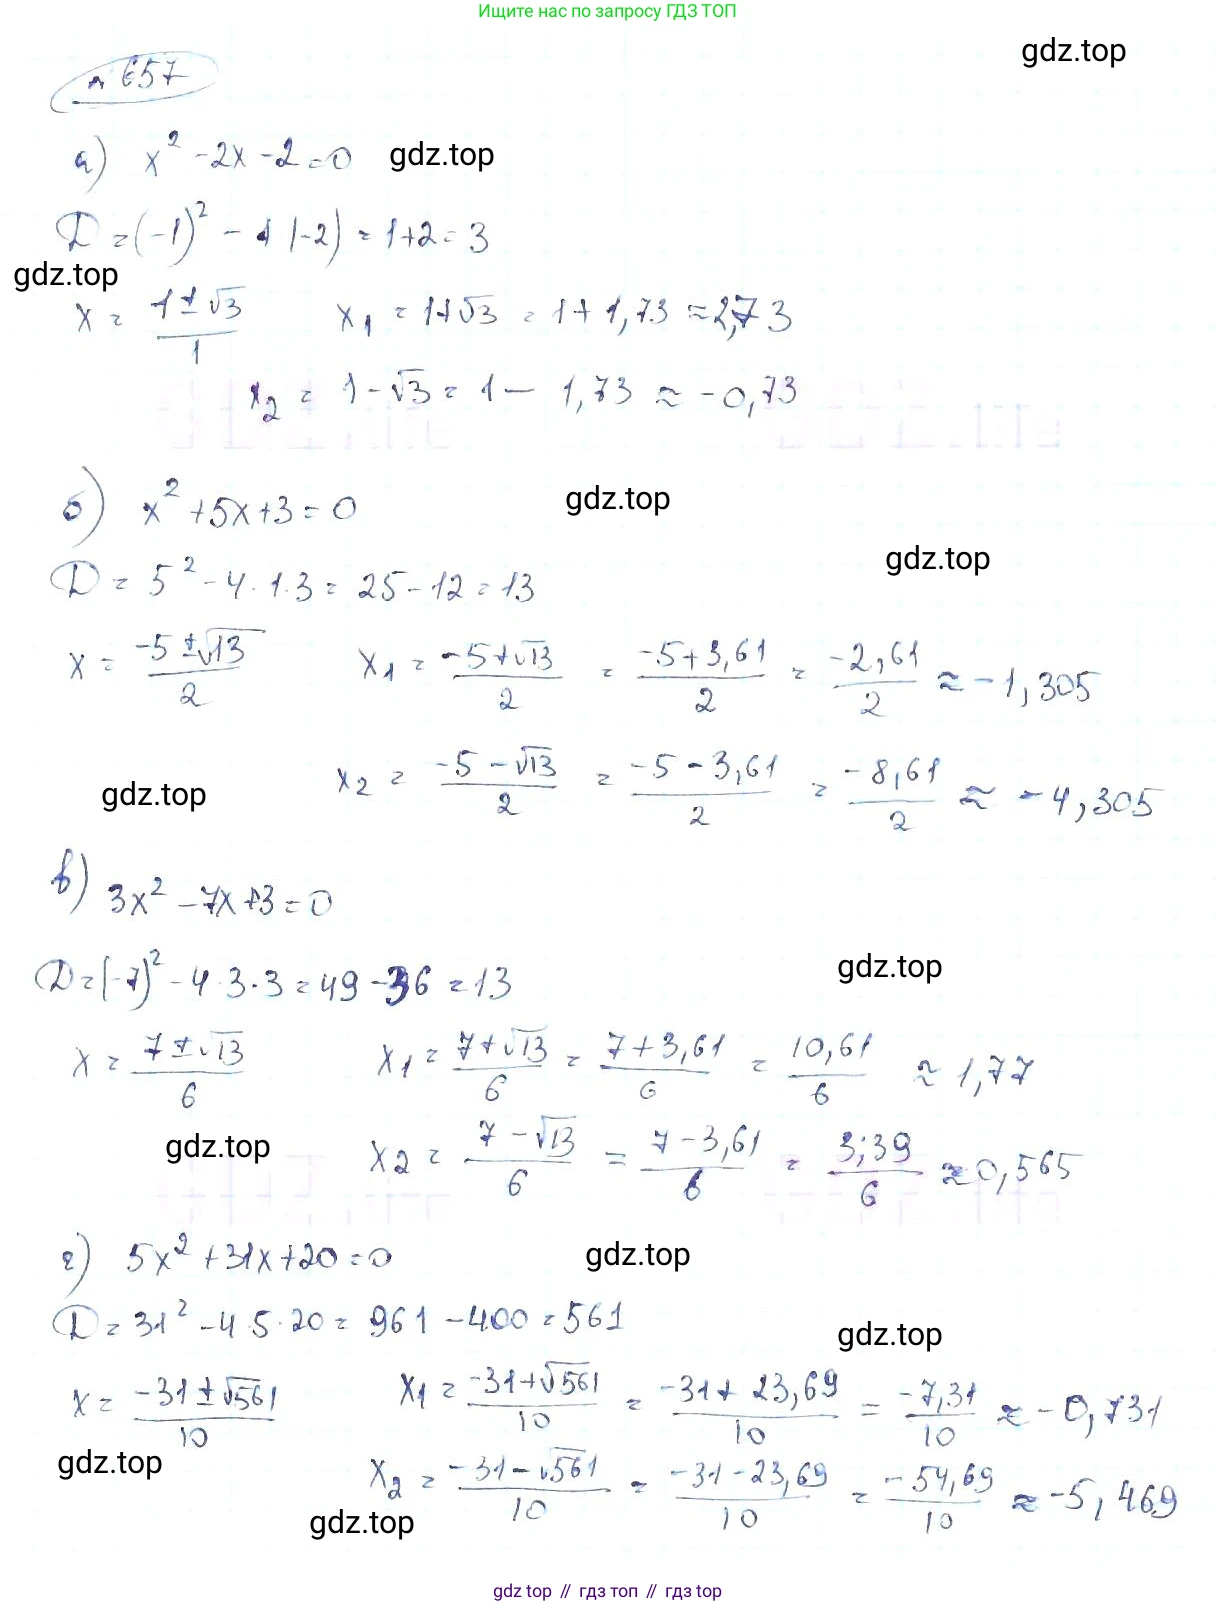 Ищите нас по запросу ГДЗ ТОП
gdz.top
№ 657
а) x² - 2x - 2 = 0 gdz.top
D = (-1)² - 1 (-2) = 1+2 = 3
gdz.top
x = (1 ± √3)/1 x₁ = 1+√3 = 1 + 1,73 ≈ 2,73
x₂ = 1 - √3 = 1 - 1,73 ≈ -0,73
б) x² + 5x + 3 = 0 gdz.top
gdz.top
D = 5² - 4 · 1 · 3 = 25 - 12 = 13
x = (-5 ± √13)/2 x₁ = (-5+√13)/2 = (-5+3,61)/2 = (-2,61)/2 ≈ -1,305
gdz.top x₂ = (-5 - √13)/2 = (-5 - 3,61)/2 = (-8,61)/2 ≈ -4,305
в) 3x² - 7x + 3 = 0
gdz.top
D = (-7)² - 4 · 3 · 3 = 49 - 36 = 13
x = (7 ± √13)/6 x₁ = (7+√13)/6 = (7+3,61)/6 = (10,61)/6 ≈ 1,77
gdz.top x₂ = (7 - √13)/6 = (7 - 3,61)/6 = (3,39)/6 ≈ 0,565
г) 5x² + 31x + 20 = 0 gdz.top
D = 31² - 4 · 5 · 20 = 961 - 400 = 561
gdz.top
x = (-31 ± √561)/10 x₁ = (-31+√561)/10 = (-31+23,69)/10 = (-7,31)/10 ≈ -0,731
gdz.top x₂ = (-31 - √561)/10 = (-31 - 23,69)/10 = (-54,69)/10 ≈ -5,469
gdz.top
gdz top // гдз топ // gdz top